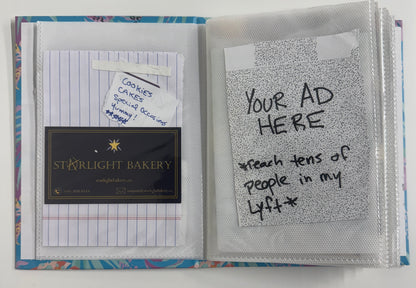 COOKIES
CAKES
Special Occasions
Yummy!
STARLIGHT BAKERY
YOUR AD
HERE
*reach tens of
people in my
Lyft*